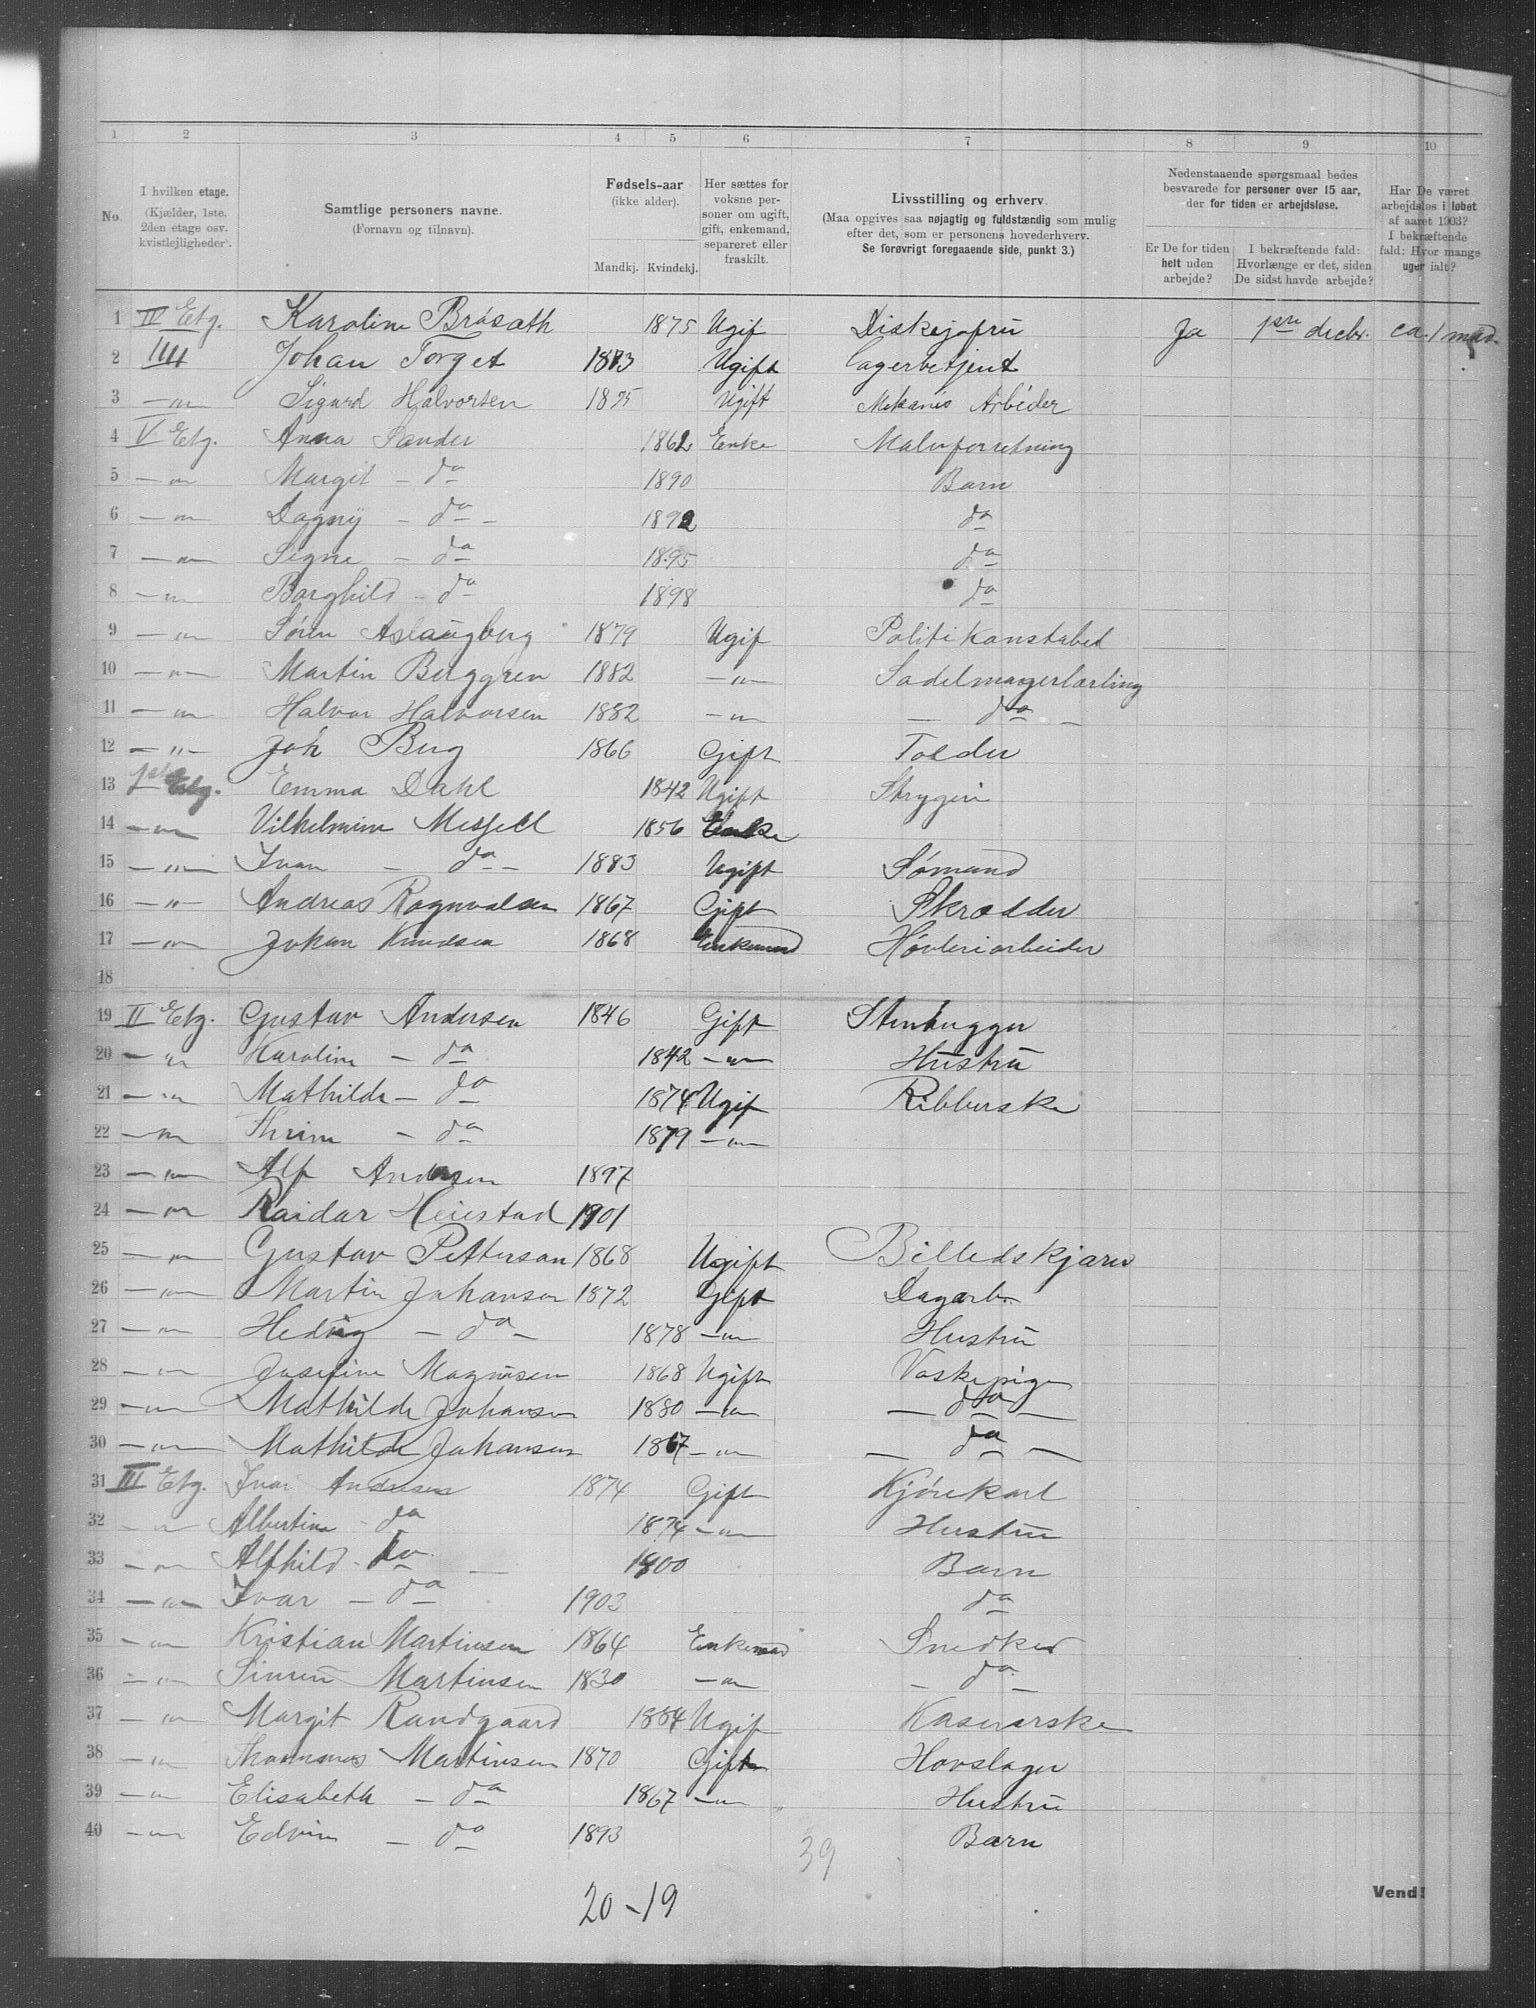 1 2 3 4 5 6 7 8 9 10
No.
I hvilken etage.
(Kjælder, 1ste,
2den etage osv.
kvistlejligheder).
Samtlige personers navne.
(Fornavn og tilnavn).
Fødsels-aar
(ikke alder).
Mandkj. Kvindekj.
Her sættes for
voksne per-
soner om ugift,
gift, enkemand,
separeret eller
fraskilt.
Livsstilling og erhverv.
(Maa opgives saa nøjagtig og fuldstændig som mulig
efter det, som er personens hovederhverv.
Se forøvrigt foregaaende side, punkt 3.)
Nedenstaaende spørgsmaal bedes
besvarede for personer over 15 aar,
der for tiden er arbejdsløse.
Er De for tiden
helt uden
arbejde?
I bekræftende fald:
Hvorlænge er det, siden
De sidst havde arbejde?
Har De været
arbejdsløs i løbet
af aaret 1903?
I bekræftende
fald: Hvor mange
uger ialt?
1 II Etg. Karoline Bråsath 1875 Ugif Diskejofru Ja 1ste decbr. ca. 1 mad.
2 IIII Johan Torget 1873 Ugift Lagerbetjent
3 — " — Sigurd Halvorsen 1875 Ugift Mekanis Arbeider
4 V Etg. Anna Sander 1862 Enke Malerforretning
5 — " — Margit — do 1890 Barn
6 — " — Dagny — do — 1892 do
7 — " — Signe — do 1895 do
8 — " — Borghild — do 1898 do
9 — " — Sören Aslaugberg 1879 Ugif Politikonstabel
10 — " — Martin Berggren 1882 — " — Sadelmagerlærling
11 — " — Halvor Halvorsen 1882 — " — — do —
12 — " — Joh Berg 1866 Gift Tolder
13 1ste Etg. Emma Dahl 1842 Ugift Strygeri
14 — " — Vilhelmine Messell 1856 Enke
15 — " — Ivar — do — 1883 Ugift Sømand
16 — " — Andreas Ragnvalsen 1867 Gift Skrædder
17 — " — Johan Knudsen 1868 Enkemand Høvleriarbeider
18
19 II Etg. Gustav Andersen 1846 Gift Stenhugger
20 — " — Karoline — do 1842 — " — Hustru
21 — " — Mathilde — do 1874 Ugif Ribberske
22 — " — Thrine — do 1879 — " —
23 — " — Alf Andersen 1897
24 — " — Raidar Heiestad 1901
25 — " — Gustav Petterson 1868 Ugift Billedskjærer
26 — " — Martin Johansen 1872 Gift Dagarb.
27 — " — Hedvig — do — 1878 — " — Hustru
28 — " — Josefine Magnusen 1868 Ugift Vaskepige
29 — " — Mathilde Johansen 1880 — " — — do —
30 — " — Mathilde Johansen 1867 — " — — do —
31 III Etg. Ivar Andersen 1874 Gift Kjørekarl
32 — " — Albertine — do 1874 — " — Hustru
33 — " — Alfhild — do — 1900 Barn
34 — " — Ivar — do 1903 do
35 — " — Kristian Martinsen 1864 Enkemad Snedker
36 — " — Simen Martinsen 1830 — " — — do —
37 — " — Margit Randgaard 1884 Ugif Kasererske
38 — " — Thommas Martinsen 1870 Gift Hovslager
39 — " — Elisabeth — do 1867 — " — Hustru
40 — " — Edvin — do 1893 Barn
39
20 – 19
Vend!